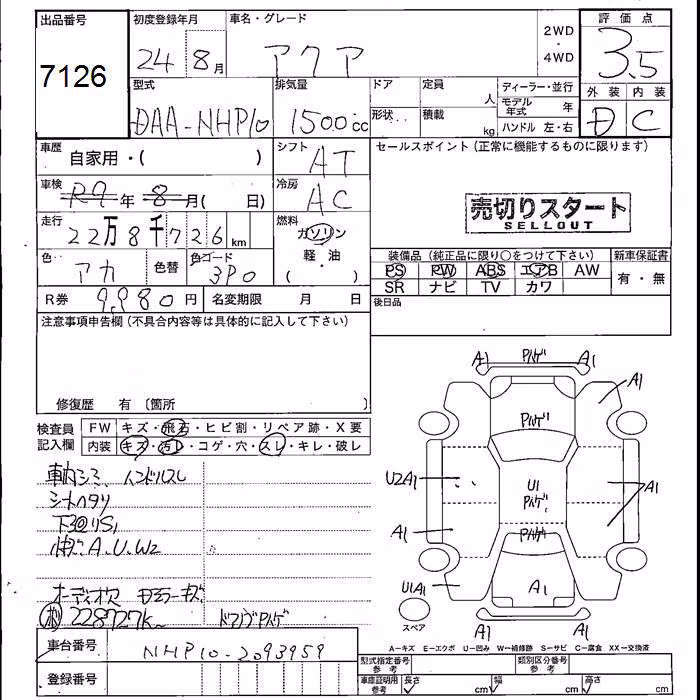 出品番号
7126
初度登録年月
24年8月
車名・グレード
アクア
2WD
・
4WD
評価点
3.5
外装 内装
D C
型式
DAA-NHP10
排気量
1500cc
ドア
形状
定員
人
積載
kg
ディーラー・並行
モデル年式 年
ハンドル 左・右
車歴
自家用・( )
シフト
AT
セールスポイント(正常に機能するものに限ります)
売切りスタート
SELLOUT
車検
R9年 8月( 日)
冷房
AC
走行
22万8千726km
燃料
ガソリン
軽・油
( )
色
アカ
色替
色コード
3P0
装備品(純正品に限り○をつけて下さい)
PS PW ABS エアB AW
SR ナビ TV カワ
新車保証書
有・無
後日品
R券 9,980円
名変期限 月 日
注意事項申告欄(不具合内容等は具体的に記入して下さい)
修復歴 有〔箇所 〕
検査員記入欄
FW キズ・飛石・ヒビ割・リペア跡・X要
内装 キズ・汚レ・コゲ・穴・スレ・キレ・破レ
車内シミ、ハンドルスレ
シートヘタリ
下回りS1
A.U.W2
オーディオ欠
228727k
ドアノブPハゲ
車台番号
NHP10-2093959
登録番号
A1 Pハゲ A1
A1
Pハゲ
U2A1
U1
Pハゲ
A1
A1
Pハゲ
U1A1
A1
スペア
A1 A1
A－キズ E－エクボ U－凹み W－補修跡 S－サビ C－腐食 XX－交換済
型式指定番号
参考
類別区分番号
参考
車庫証明用
参考
長さ cm
幅 cm
高さ cm